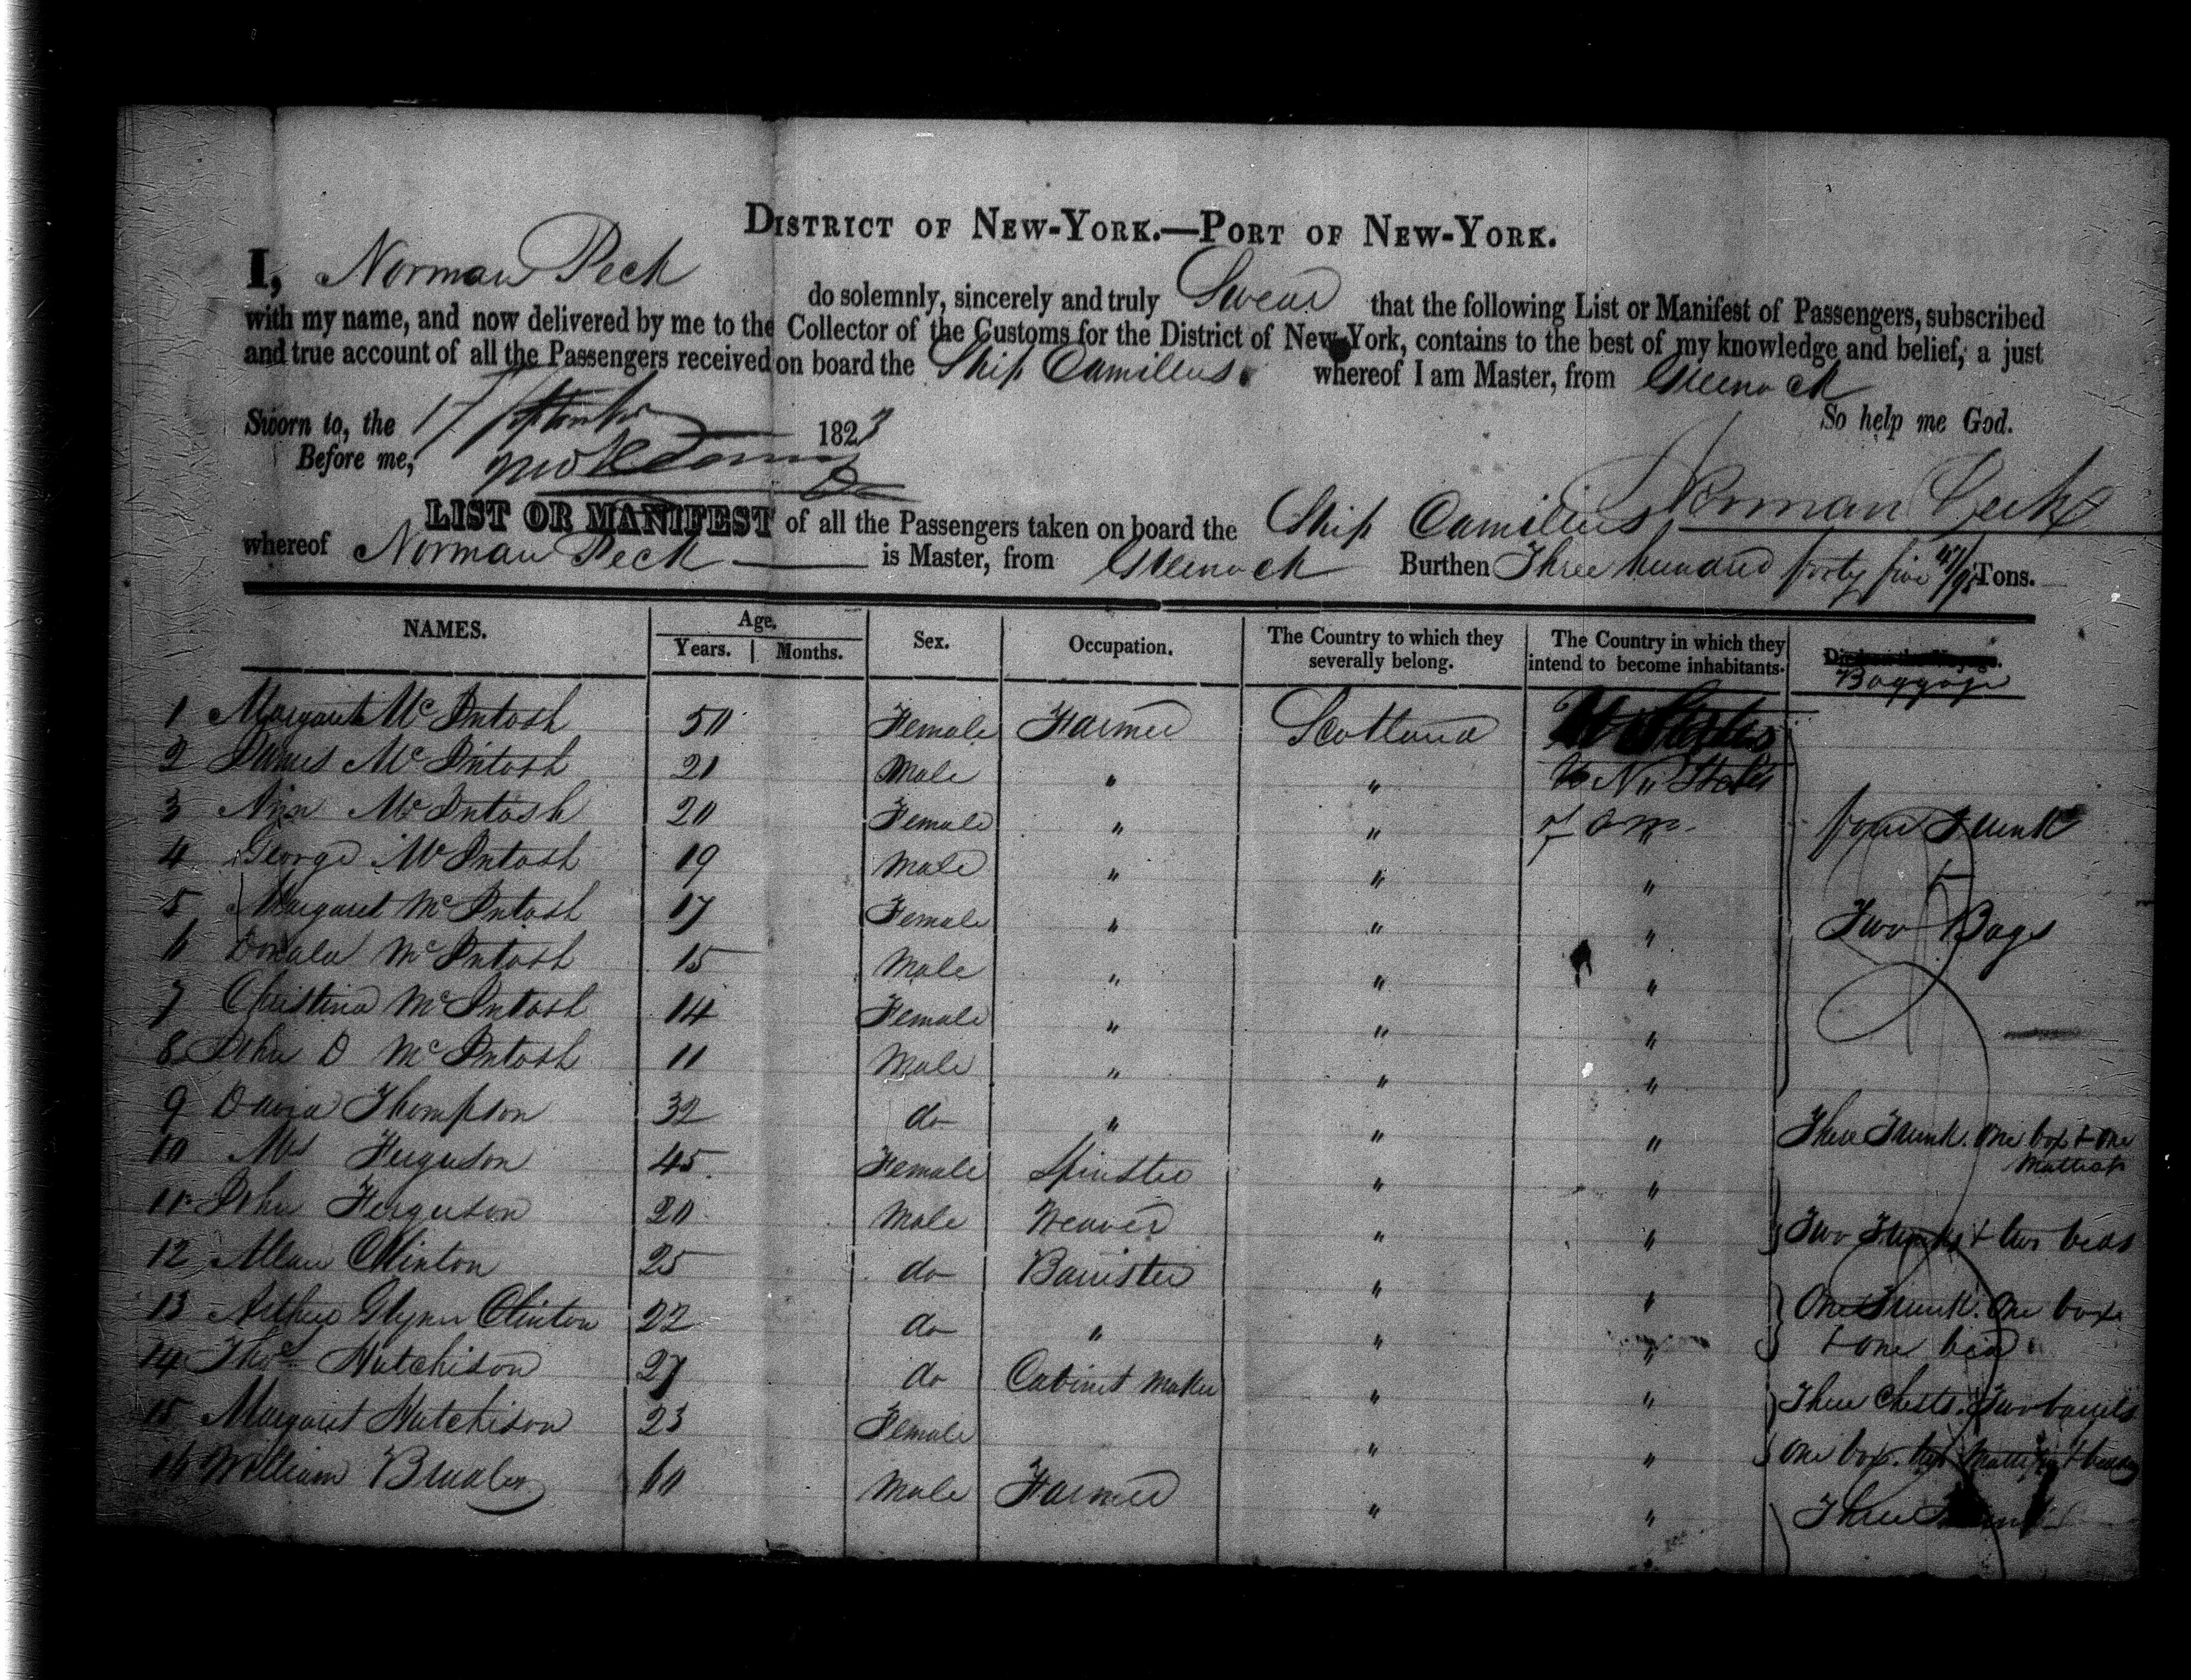 DISTRICT OF NEW-YORK.—PORT OF NEW-YORK.
I, Norman Peck do solemnly, sincerely and truly Swear that the following List or Manifest of Passengers, subscribed
with my name, and now delivered by me to the Collector of the Customs for the District of New-York, contains to the best of my knowledge and belief, a just
and true account of all the Passengers received on board the Ship Camillus whereof I am Master, from Greenock
So help me God.
Sworn to, the 17 September 1823
Before me,
Norman Peck
LIST OR MANIFEST of all the Passengers taken on board the Ship Camillus
whereof Norman Peck is Master, from Greenock Burthen Three hundred forty five 47/95 Tons.
NAMES. Age. Years. Months. Sex. Occupation. The Country to which they severally belong. The Country in which they intend to become inhabitants. Died on the Voyage. Baggage
1 Margaret McIntosh 50 Female Farmer Scotland
2 James McIntosh 21 Male " " Un States
3 Ann McIntosh 20 Female " " of Am. four Trunk
4 George McIntosh 19 Male " " "
5 Margaret McIntosh 17 Female " " " Two Bags
6 Donald McIntosh 15 Male " " "
7 Christina McIntosh 14 Female " " "
8 John D McIntosh 11 Male " " "
9 David Thompson 32 do " " " Three Trunk. One box & One Mattrass
10 Mrs Ferguson 45 Female Spinster " "
11 John Ferguson 20 Male Weaver " " Two Trunks & two beds
12 Allan Clinton 25 do Barrister " " One Trunk. One box
13 Arthur Glynn Clinton 22 do " " " & one bed
14 Thos Hutchison 27 do Cabinet Maker " " Three Chests. Two barrels
15 Margaret Hutchison 23 Female " " One box. two Mattrass & bedding
16 William 60 Male Farmer " " Three